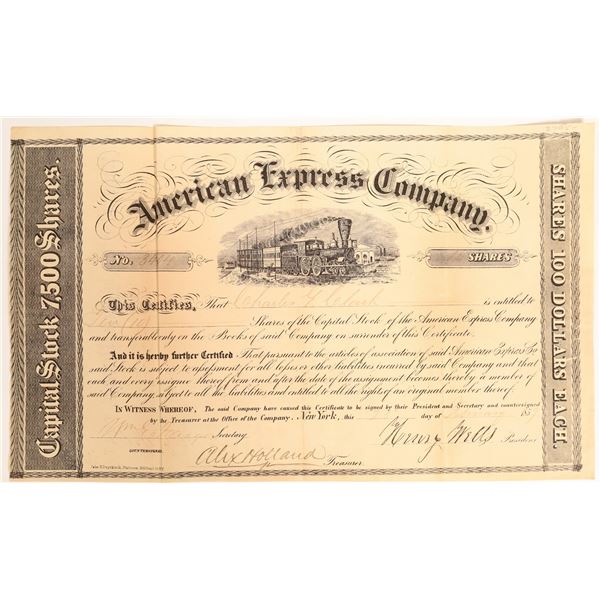 American Express Company.
No. SHARES
This Certifies, That Charles is entitled to
Shares of the Capital Stock of the American Express Company
and transferable only on the Books of said Company on surrender of this Certificate.
And it is hereby further Certified. That pursuant to the articles of association of said American Express Co
said Stock is subject to assessment for all losses or other liabilities incurred by said Company and that
each and every assignee thereof from and after the date of the assignment becomes thereby a member of
said Company, subject to all the liabilities and entitled to all the rights of an original member thereof
IN WITNESS WHEREOF, The said Company have caused this Certificate to be signed by their President and Secretary and countersigned
by the Treasurer at the Office of the Company. New York, this day of 185
Secretary Henry Wells President
COUNTERSIGNED
Alex Holland Treasurer
Capital Stock 7,500 Shares.
SHARES 100 DOLLARS EACH.